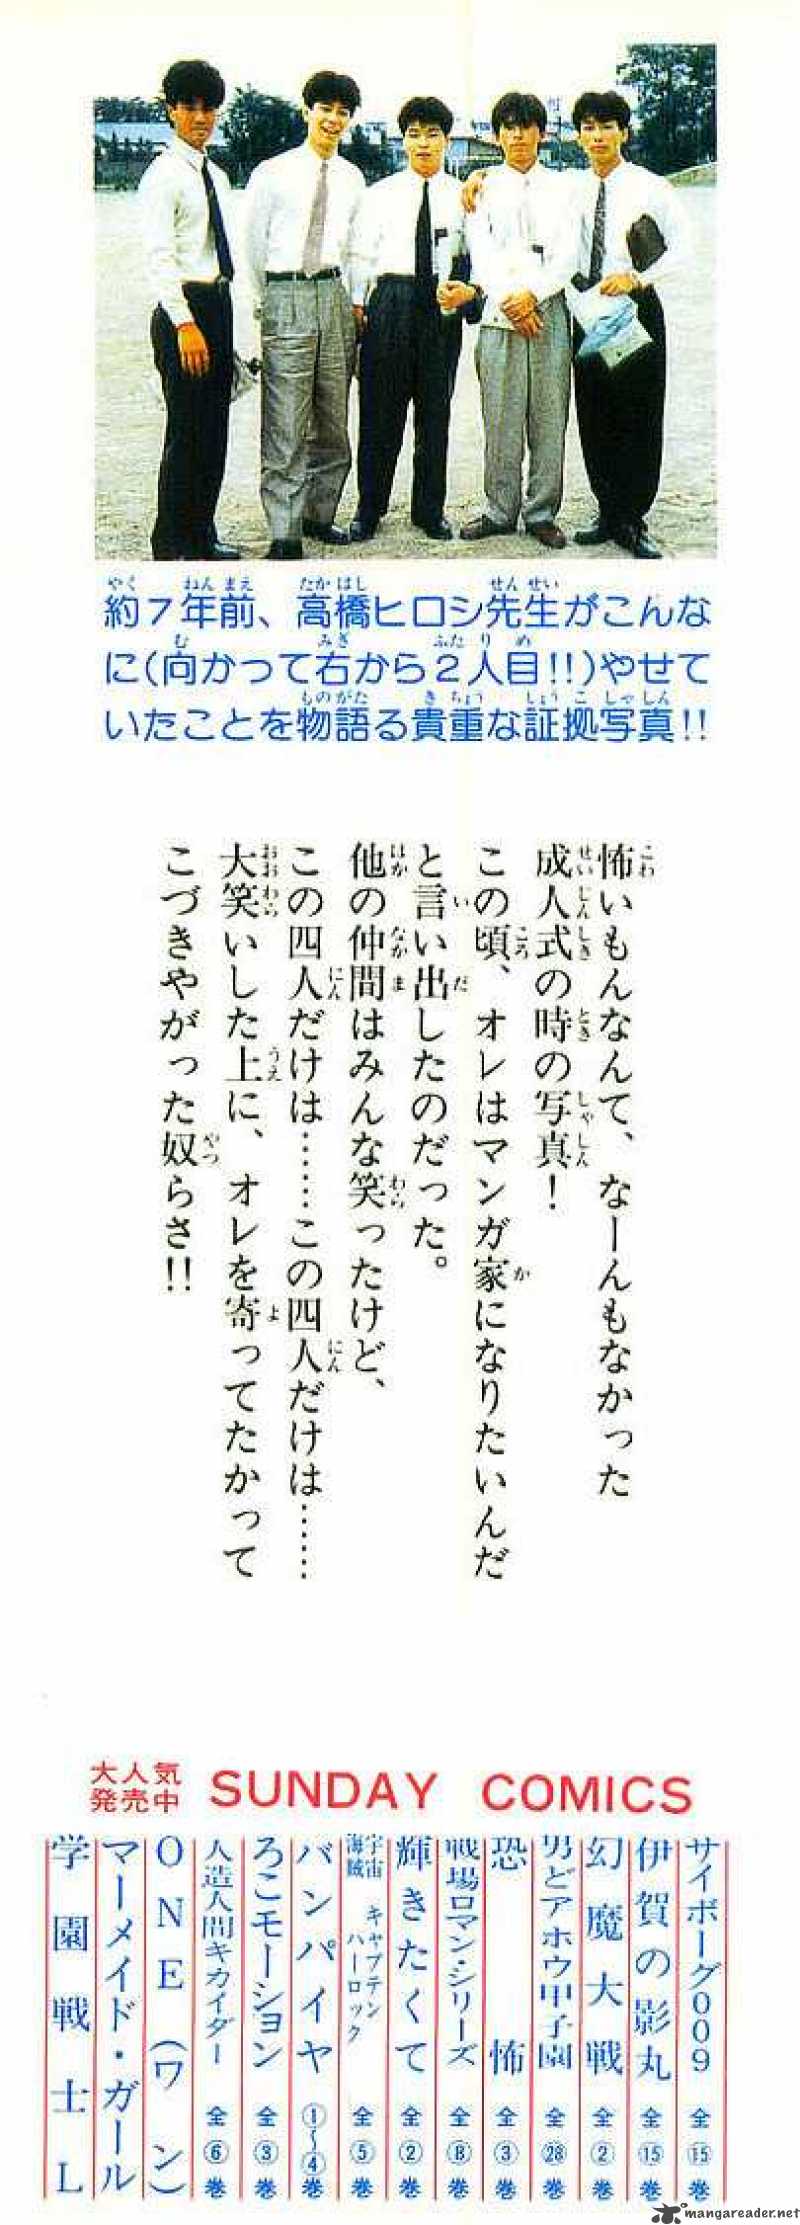 約7年前、高橋ヒロシ先生がこんな
に(向かって右から2人目!!)やせて
いたことを物語る貴重な証拠写真!!
怖いもんなんて、なーんもなかった
成人式の時の写真!
この頃、オレはマンガ家になりたいんだ
と言い出したのだった。
他の仲間はみんな笑ったけど、
この四人だけは……この四人だけは……
大笑いした上に、オレを寄ってたかって
こづきやがった奴らさ!!
大人気発売中 SUNDAY COMICS
サイボーグ009 全⑮巻
伊賀の影丸 全⑮巻
幻魔大戦 全②巻
男どアホウ甲子園 全㉘巻
恐怖 全③巻
戦場ロマン・シリーズ 全⑧巻
輝きたくて 全②巻
宇宙海賊 キャプテンハーロック 全⑤巻
バンパイヤ ①〜④巻
ろこモーション 全③巻
人造人間キカイダー 全⑥巻
ONE(ワン)
マーメイド・ガール
学園戦士L
mangareader.net